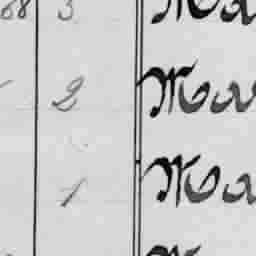 68 3 Ma
2 Ma
1 Ma